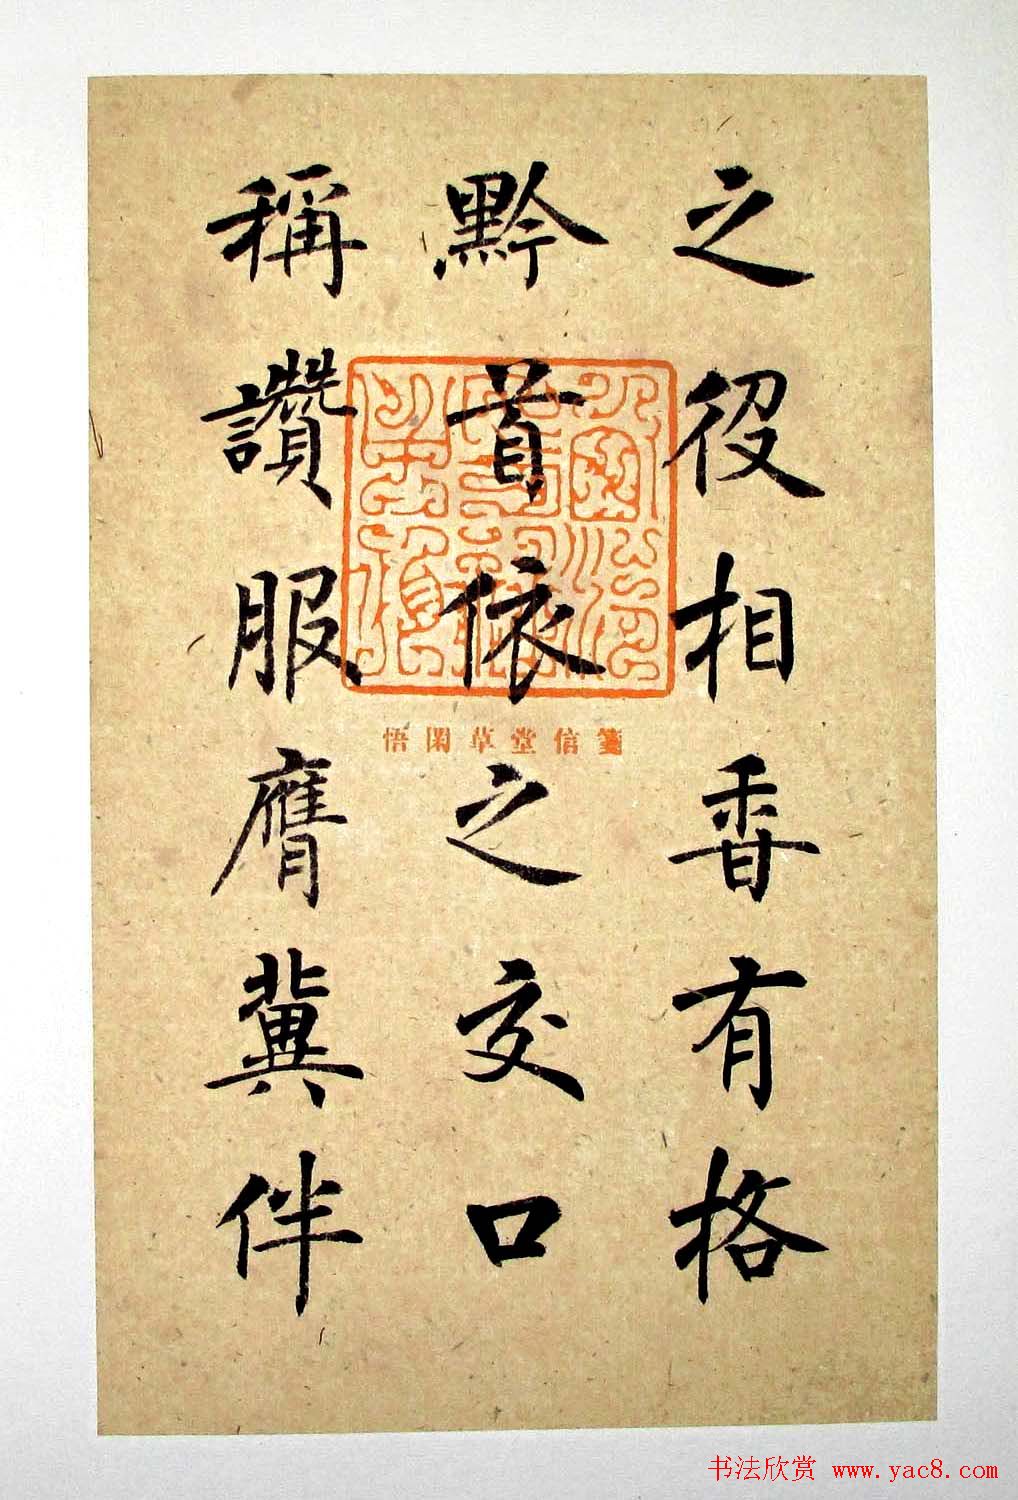 之役相香有格
黔首依之交口
稱讚服膺冀伴
悟閑草堂信箋
书法欣赏 www.yac8.com